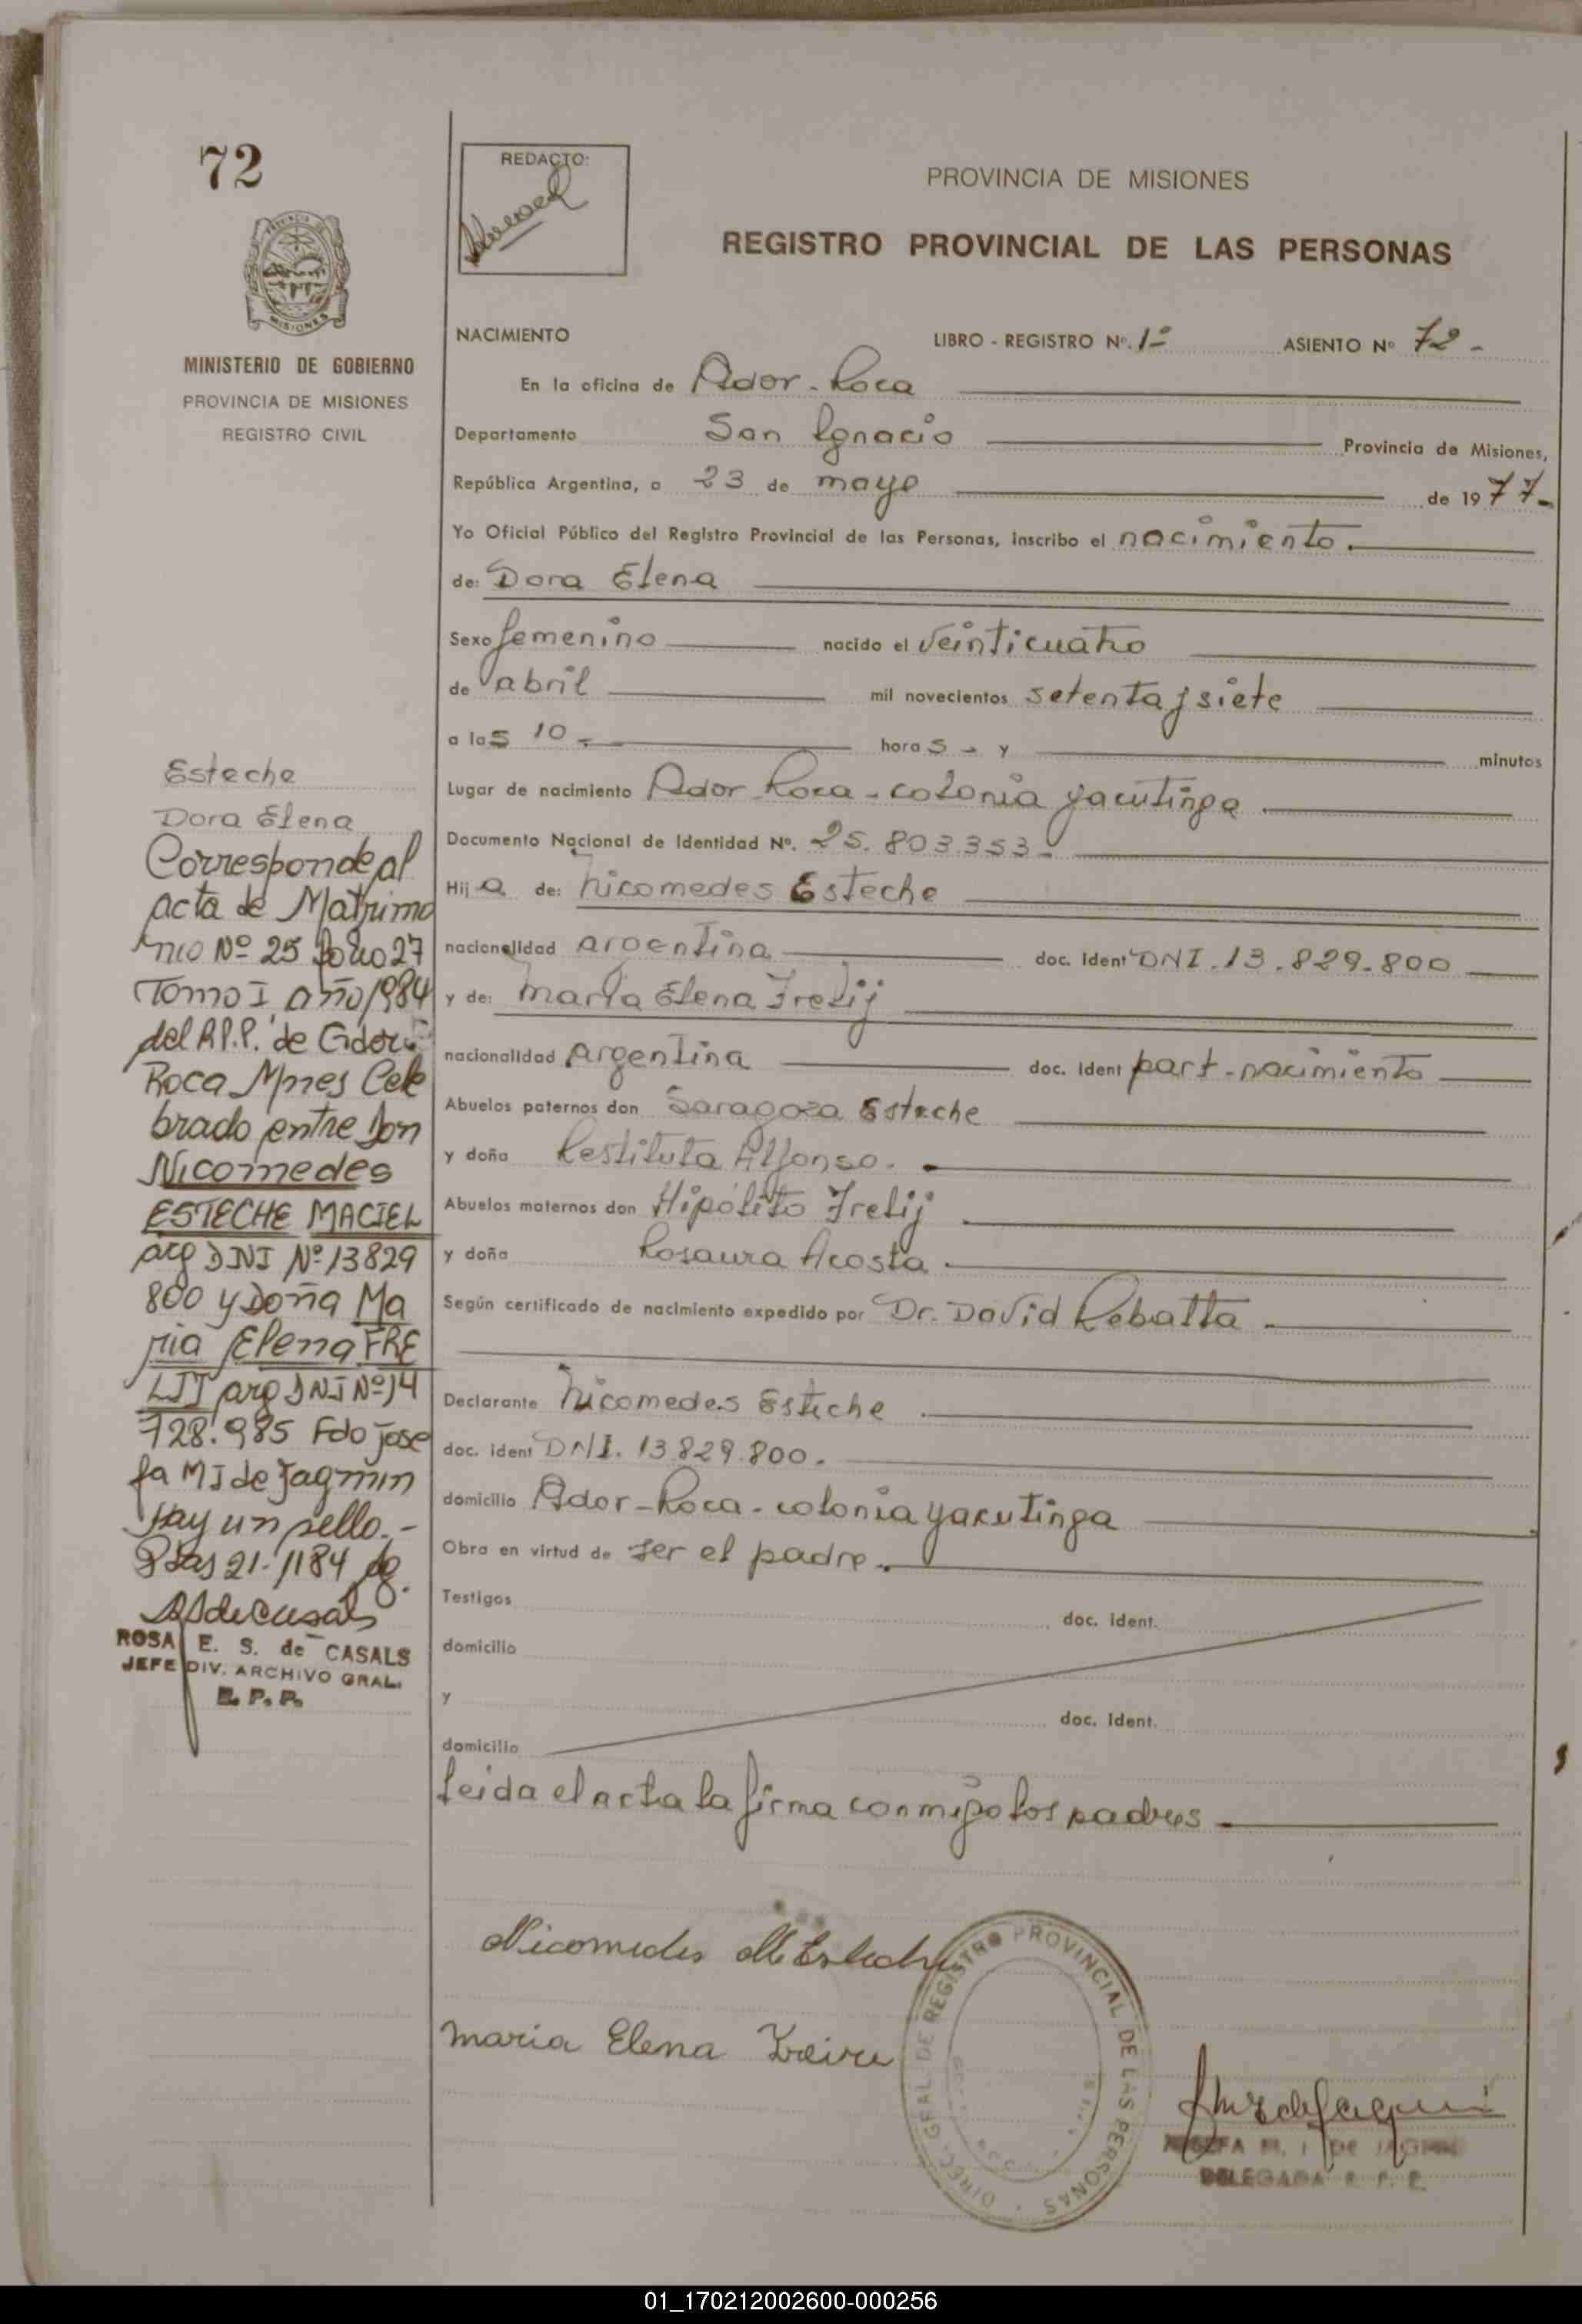 72
REDACTO:
PROVINCIA DE MISIONES
REGISTRO PROVINCIAL DE LAS PERSONAS
MISIONES
MINISTERIO DE GOBIERNO
PROVINCIA DE MISIONES
REGISTRO CIVIL
NACIMIENTO LIBRO - REGISTRO Nº. 1º ASIENTO Nº 72 -
En la oficina de Ador - Roca
Departamento San Ignacio Provincia de Misiones,
República Argentina, a 23 de mayo de 1977-
Yo Oficial Público del Registro Provincial de las Personas, inscribo el nacimiento.
de: Dora Elena
Sexo femenino nacido el veinticuatro
de abril mil novecientos setenta y siete
a las 10 - horas - y minutos
Lugar de nacimiento Ador - Roca - colonia yacutinga
Documento Nacional de Identidad Nº. 25.803.353 -
Hija de: Nicomedes Esteche
nacionalidad argentina doc. ident DNI. 13.829.800
y de: maria Elena Frelij
nacionalidad argentina doc. ident part - nacimiento
Abuelos paternos don Saragoza Esteche
y doña Restituta Alfonso.
Abuelos maternos don Hipólito Frelij
y doña Rosaura Acosta
Según certificado de nacimiento expedido por Dr. David Rebatta
Declarante Nicomedes Esteche
doc. ident DNI. 13.829.800.
domicilio Ador - Roca - colonia yacutinga
Obra en virtud de ser el padre.
Testigos doc. ident.
domicilio
y doc. ident.
domicilio
Leida el acta la firma conmigo los padres
Esteche
Dora Elena
Corresponde al
acta de Matrimo
nio Nº 25 folio 27
Tomo I año 1984
del R.P.P. de Gdor
Roca Mnes Cele
brado entre Don
Nicomedes
ESTECHE MACIEL
arg DNI Nº 13829
800 y Doña Ma
ria Elena FRE
LIJ arg DNI Nº 14
728.985 Fdo Jose
fa M I de Jagmin
Hay un sello.-
Pdas 21-1184
ROSA E. S. de CASALS
JEFE DIV. ARCHIVO GRAL.
R. P. P.
Nicomedes M Esteche
maria Elena
DIREC. GRAL. DE REGISTRO PROVINCIAL DE LAS PERSONAS
JOSEFA M. I. DE JAGMIN
DELEGADA R. P. P.
01_170212002600-000256